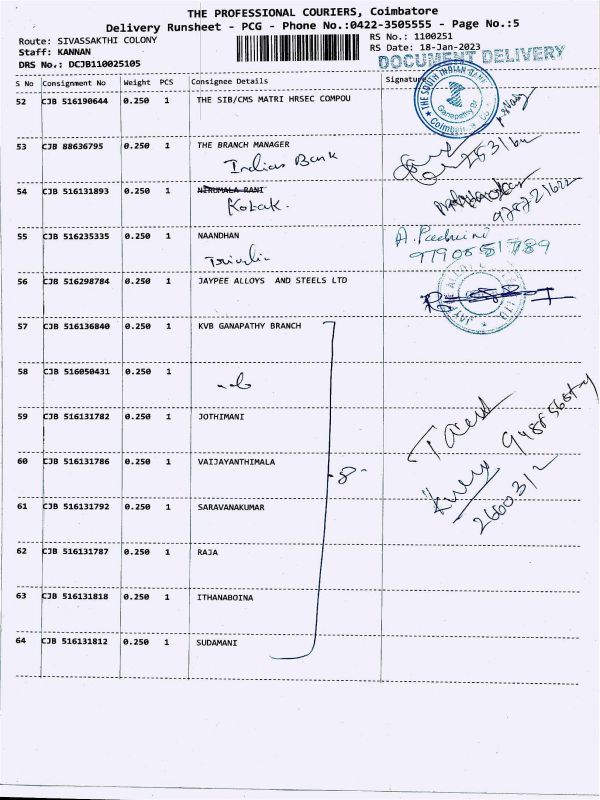 THE PROFESSIONAL COURIERS, Coimbatore
Delivery Runsheet - PCG - Phone No.:0422-3505555 - Page No.:5
Route: SIVASSAKTHI COLONY
RS No.: 1100251
Staff: KANNAN
RS Date: 18-Jan-2023
DRS No.: DCJB110025105
DOCUMENT DELIVERY
S No Consignment No Weight PCS Consignee Details Signature
52 CJB 516190644 0.250 1 THE SIB/CMS MATRI HRSEC COMPOU
THE SOUTH INDIAN BANK
Ganapathy Br
Coimbatore
53 CJB 88636795 0.250 1 THE BRANCH MANAGER
Indian Bank
54 CJB 516131893 0.250 1 NIRUMALA RANI
Kotak.
55 CJB 516235335 0.250 1 NAANDHAN
56 CJB 516298784 0.250 1 JAYPEE ALLOYS AND STEELS LTD
57 CJB 516136840 0.250 1 KVB GANAPATHY BRANCH
58 CJB 516050431 0.250 1
59 CJB 516131782 0.250 1 JOTHIMANI
60 CJB 516131786 0.250 1 VAIJAYANTHIMALA
-8-
61 CJB 516131792 0.250 1 SARAVANAKUMAR
62 CJB 516131787 0.250 1 RAJA
63 CJB 516131818 0.250 1 ITHANABOINA
64 CJB 516131812 0.250 1 SUDAMANI